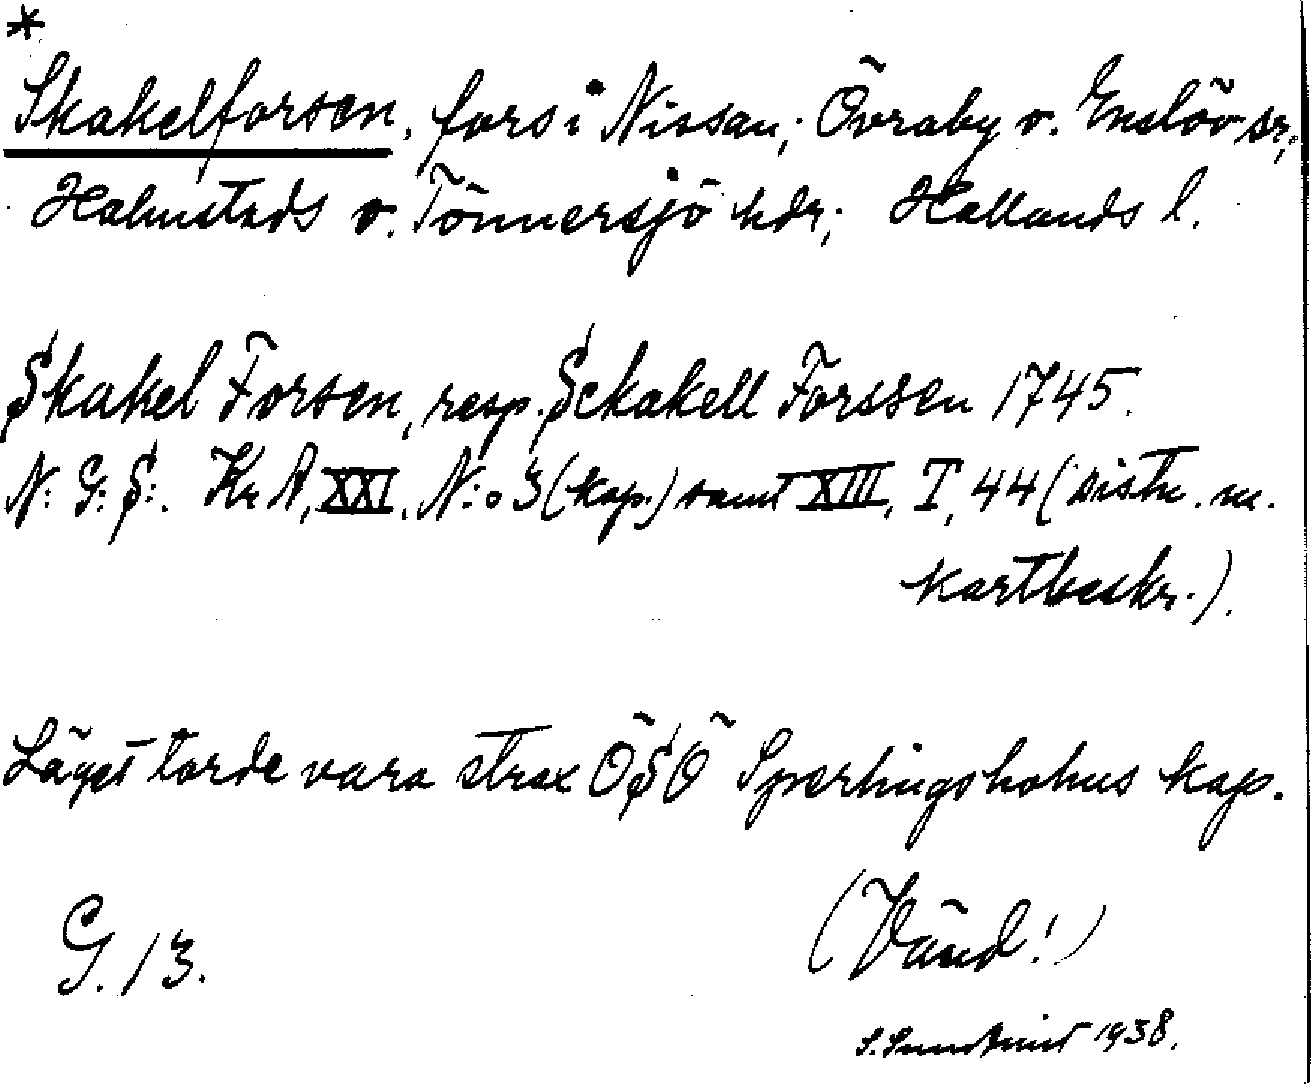 *
Skakelforsen, fors i Nissan; Övraby o. Enslöv sr,
Halmstads o. Tönnersjö hdr; Hallands l.
Skakel Forsen, resp. Sckakell Forssen 1745.
N: G: S:. Kr A, XXI, N:o 3 (kap.) samt XIII, I, 44 (distr. m.
kartbeskr.).
Läget torde vara strax ÖSÖ Sperlingsholms kap.
G. 13.
(Vänd!)
S. 1938.